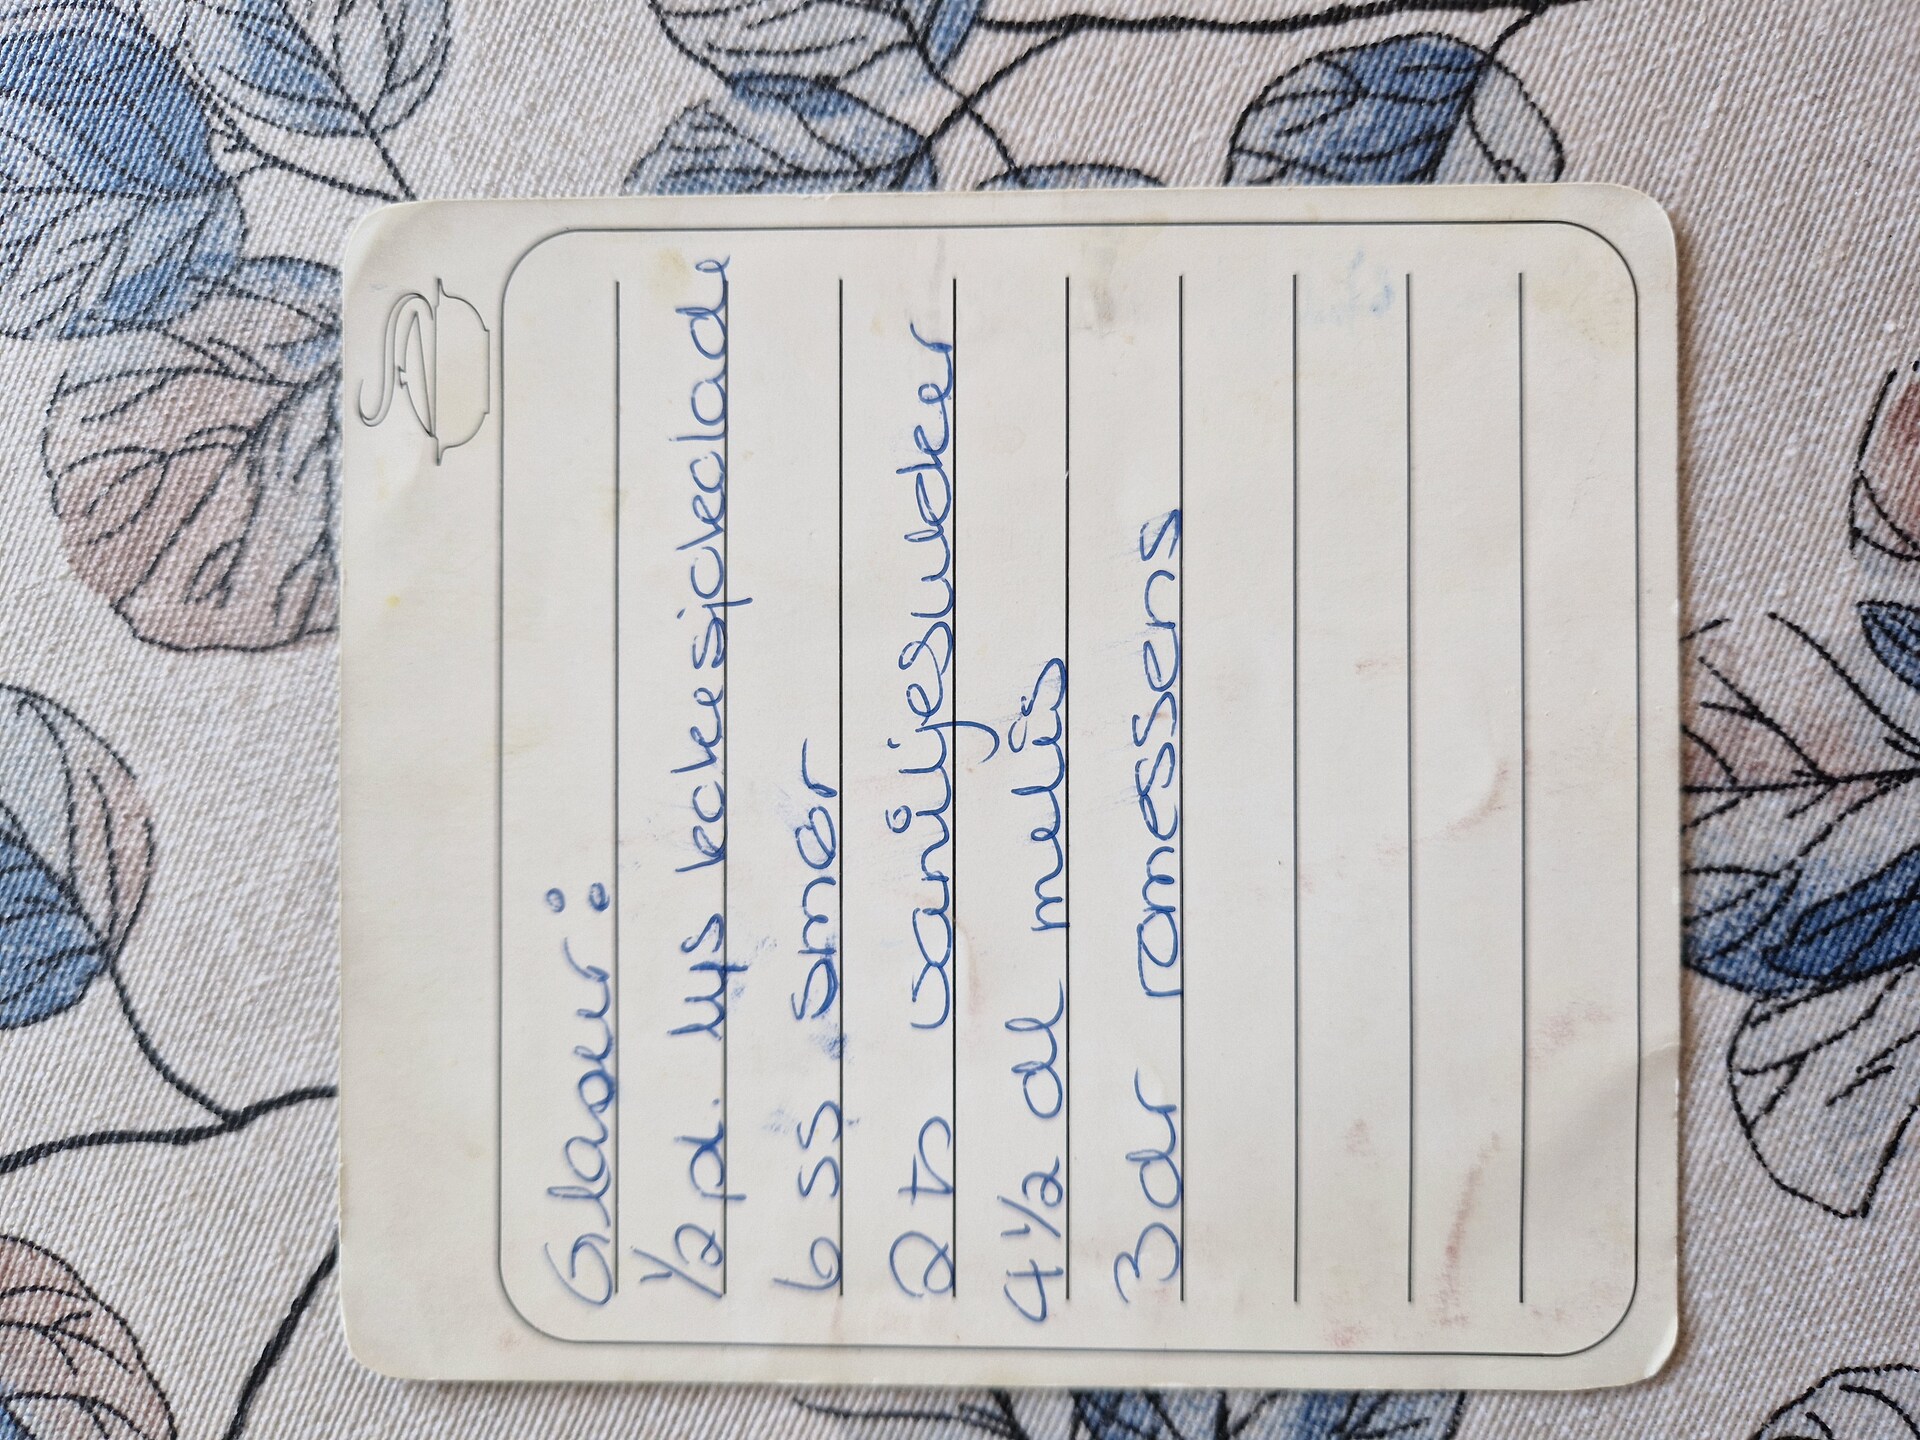 Glasur:
1/2 pl. lys kokesjokolade
6 ss smør
2 ts vaniljesukker
4 1/2 dl melis
3 dr romessens